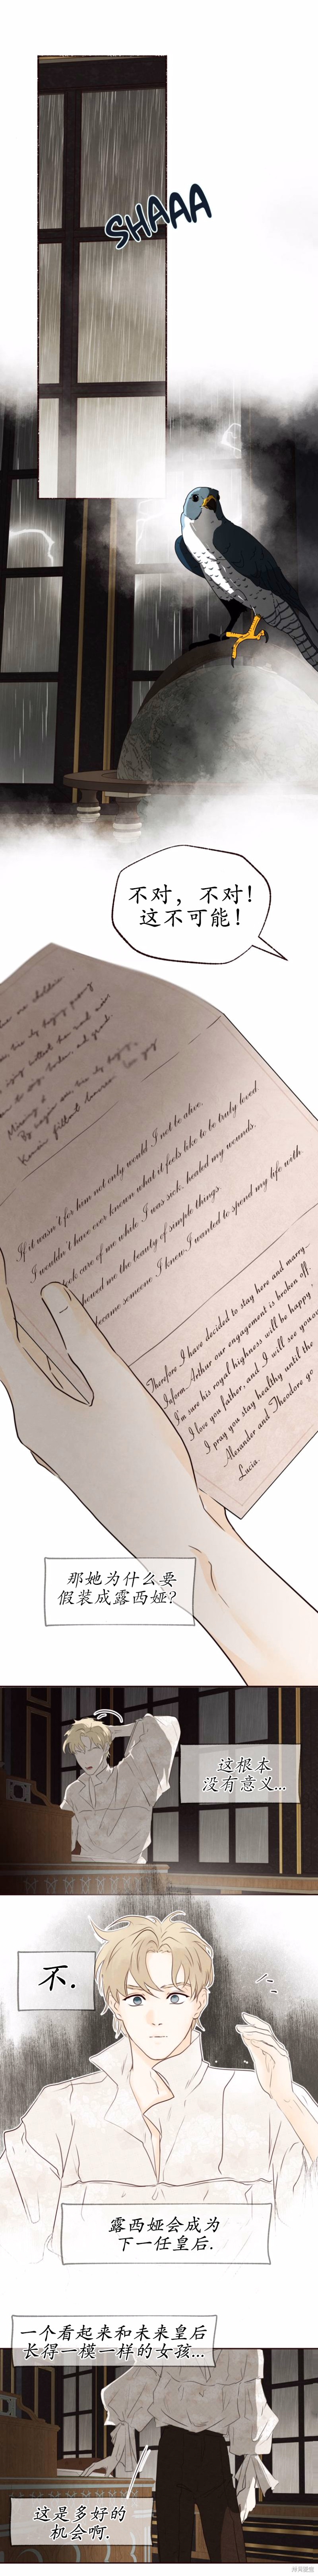 SHAAA
不对，不对！
这不可能！
If it wasn't for him not only would I not be alive,
I wouldn't have ever known what it feels like to be truly loved
took care of me while I was sick, healed my wounds,
howed me the beauty of simple things.
became someone I knew I wanted to spend my life with.
Therefore I have decided to stay here and marry
Inform Arthur our engagement is broken off.
I'm sure his royal highness will be happy
I love you father, and I will see you
I pray you stay healthy until the
Alexander and Theodore go
Lucia.
那她为什么要
假装成露西娅？
这根本
没有意义...
不.
露西娅会成为
下一任皇后.
一个看起来和未来皇后
长得一模一样的女孩...
这是多好的
机会啊.